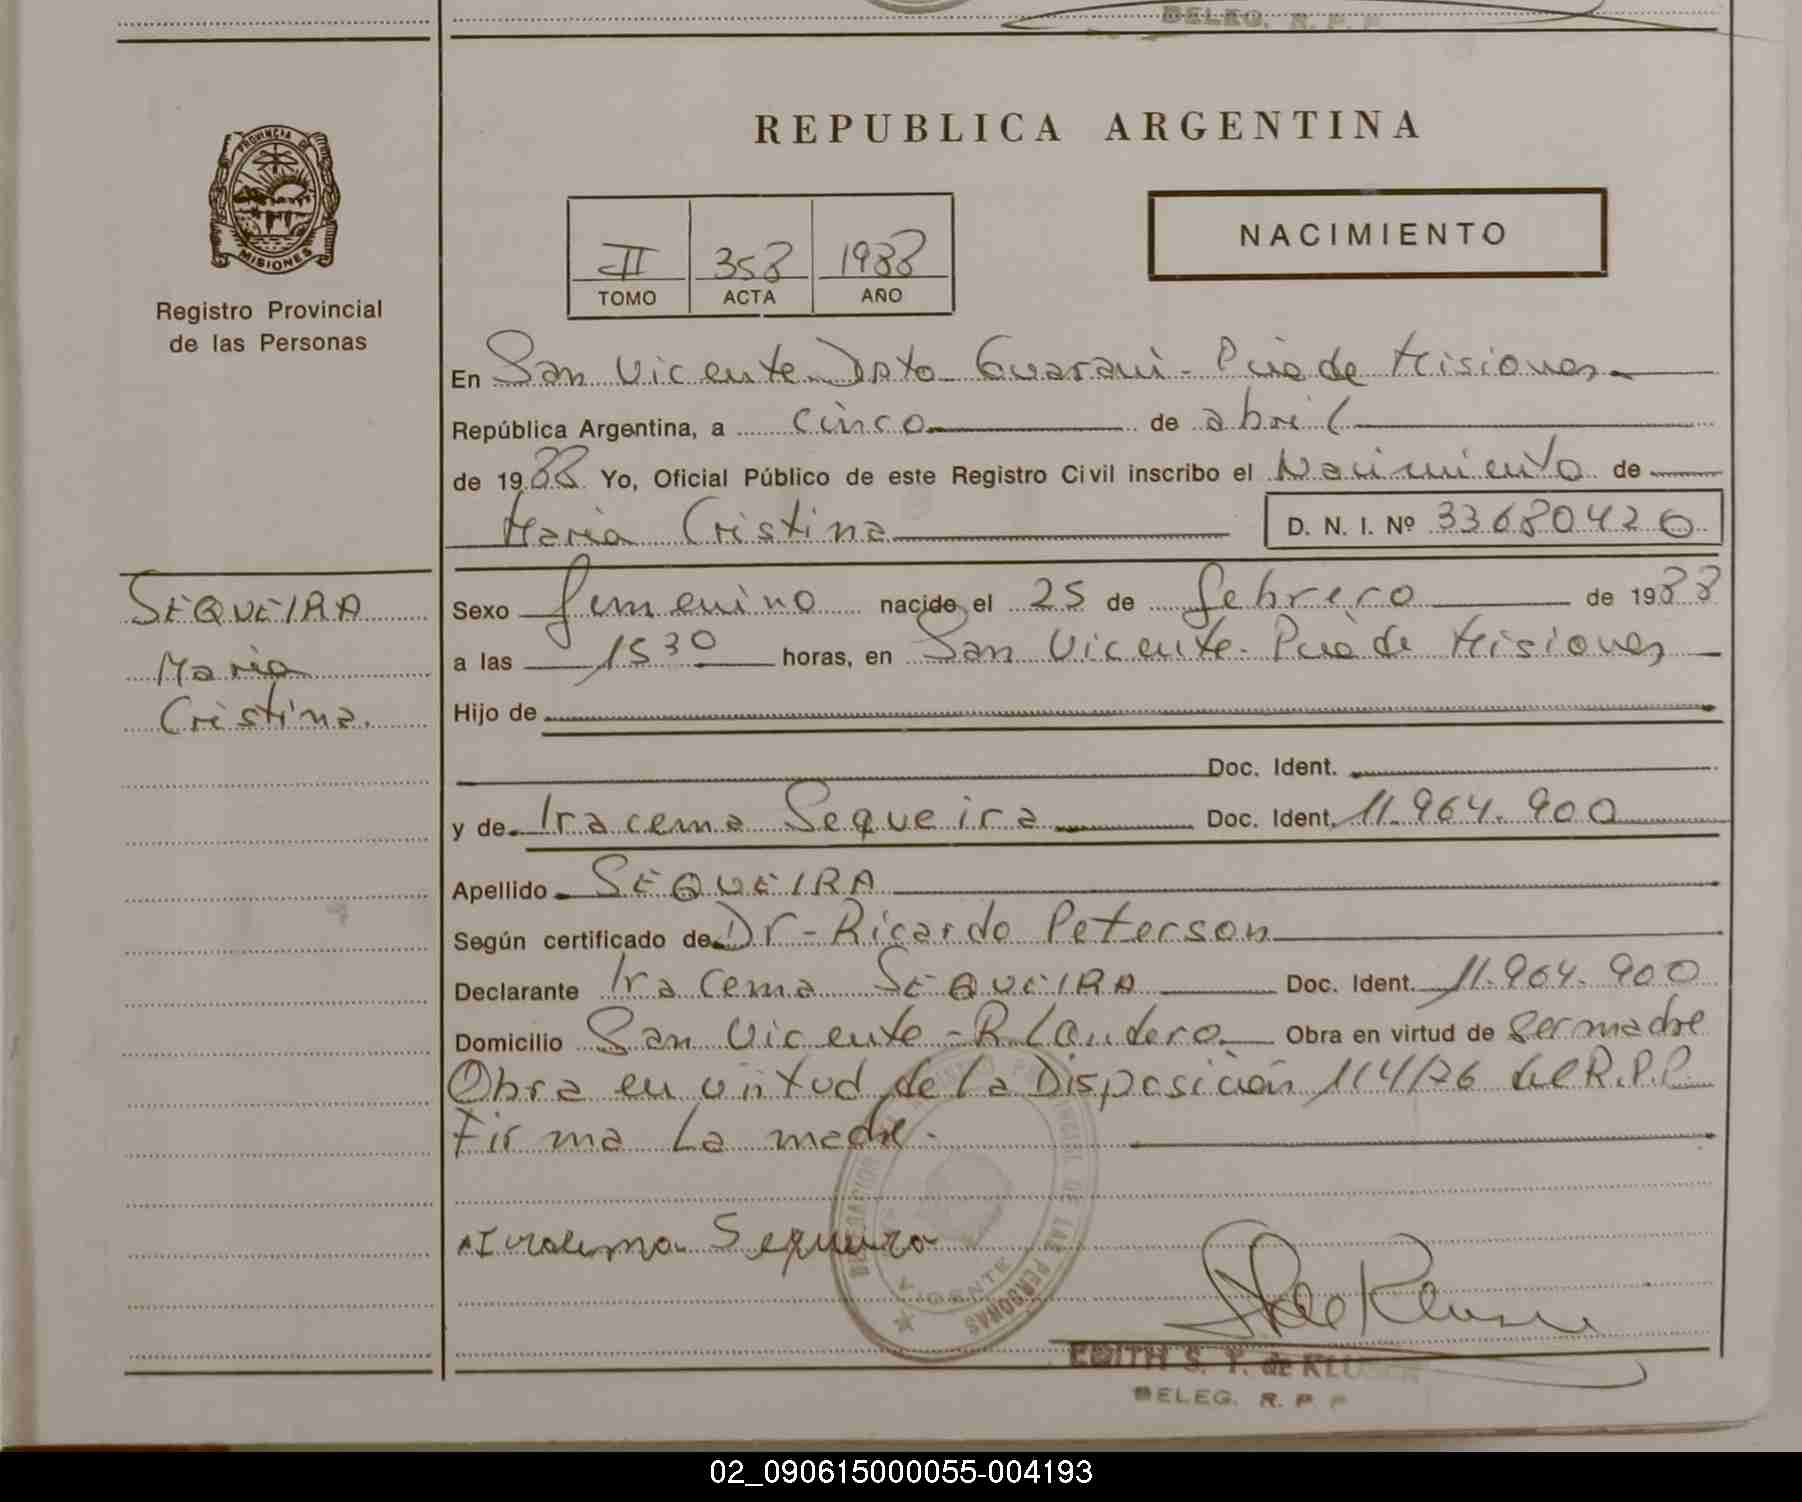 DELEG. R. P. P
PROVINCIA DE
MISIONES
Registro Provincial
de las Personas
REPUBLICA ARGENTINA
II 358 1988
TOMO ACTA AÑO
NACIMIENTO
En San Vicente Dpto Guarani - Pcia de Misiones
República Argentina, a cinco de abril
de 1988 Yo, Oficial Público de este Registro Civil inscribo el Nacimiento de
Maria Cristina D. N. I. Nº 33680426
SEQUEIRA
Maria
Cristina.
Sexo femenino nacido el 25 de febrero de 1988
a las 15 30 horas, en San Vicente - Pcia de Misiones
Hijo de
Doc. Ident.
y de Iracema Sequeira Doc. Ident. 11.964.900
Apellido SEQUEIRA
Según certificado de Dr - Ricardo Peterson
Declarante Iracema SEQUEIRA Doc. Ident. 11.964.900
Domicilio San Vicente - R. Landero Obra en virtud de ser madre
Obra en virtud de la Disposición 114/76 del R.P.P.
Firma la madre.
Iracema Sequeira
DELEGACION REGISTRO PROVINCIAL DE LAS PERSONAS
VICENTE
EDITH S. T. de KLU
DELEG. R. P. P
02_090615000055-004193